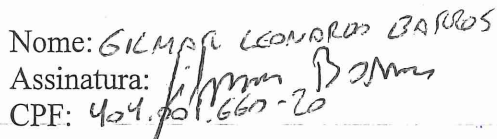 Nome: GILMAR LEONARDO BARROS
Assinatura: Gilmar Barros
CPF: 404.901.660-20